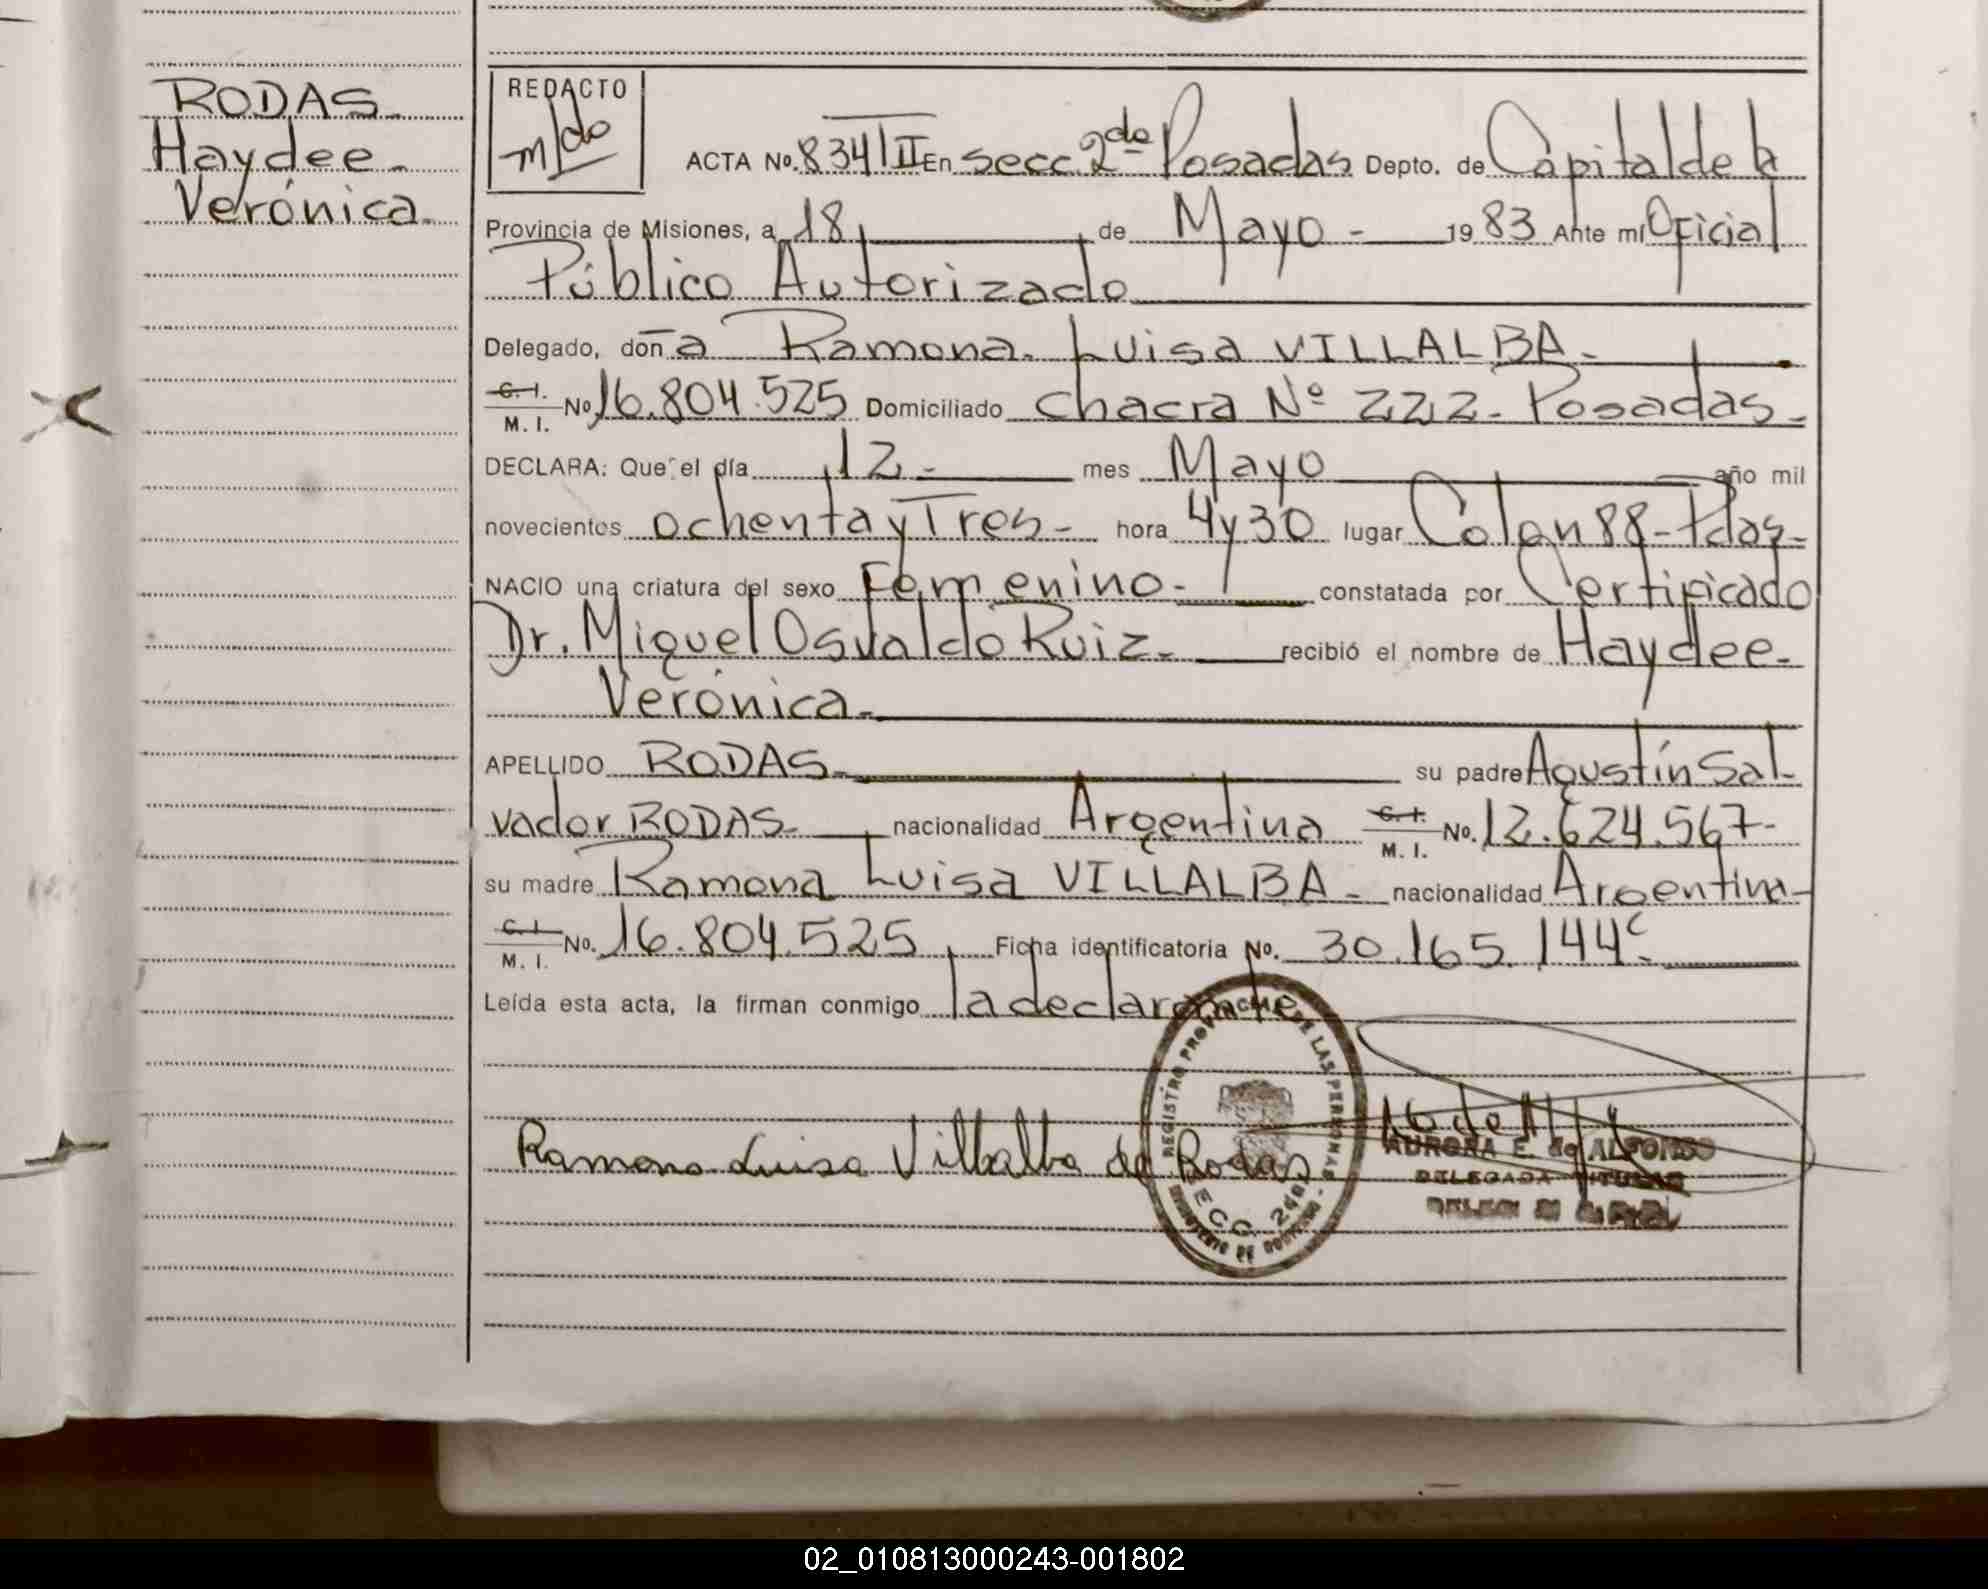 RODAS
Haydee
Verónica
REDACTO
m/do
ACTA No. 834 III En secc. 2da Posadas Depto. de Capital de la
Provincia de Misiones, a 18 de Mayo - 1983 Ante mí Oficial
Público Autorizado
Delegado, doña Ramona Luisa VILLALBA.
C. I. M. I. No 16.804.525 Domiciliado Chacra Nº 222 - Posadas -
DECLARA: Que el día 12 - mes Mayo año mil
novecientos ochenta y Tres - hora 4 y 30 lugar Colon 88 - Pdas -
NACIO una criatura del sexo Femenino - constatada por Certificado
Dr. Miguel Osvaldo Ruiz - recibió el nombre de Haydee
Verónica -
APELLIDO RODAS - su padre Agustín Sal-
vador RODAS nacionalidad Argentina C. I. M. I. No. 12.624.567 -
su madre Ramona Luisa VILLALBA - nacionalidad Argentina -
C. I. M. I. No. 16.804.525 Ficha identificatoria No. 30.165.144 c
Leída esta acta, la firman conmigo la declarante
Ramona Luisa Villalba de Rodas
REGISTRO PROVINCIAL DE LAS PERSONAS
SECC. 2da
MINISTERIO DE GOBIERNO
AURORA E. de ALFONSO
DELEGADA TITULAR
02_010813000243-001802